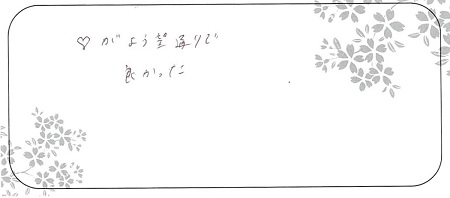 ♡がよう望通りで
良かった